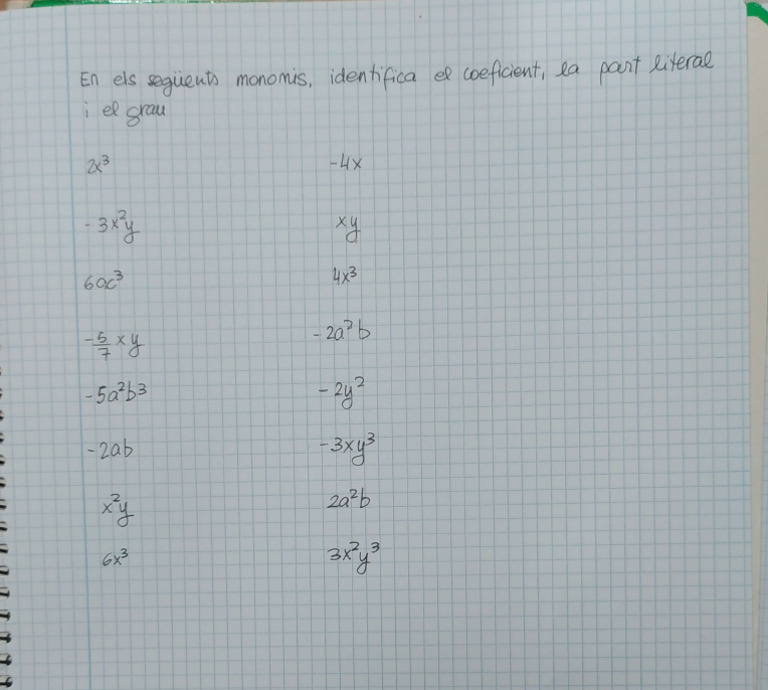 En els següents monomis, identifica el coeficient, la part literal
i el grau
2x³ -4x
-3x²y xy
6ac³ 4x³
-5/7 xy -2a²b
-5a²b³ -2y²
-2ab -3xy³
x²y 2a²b
6x³ 3x²y³